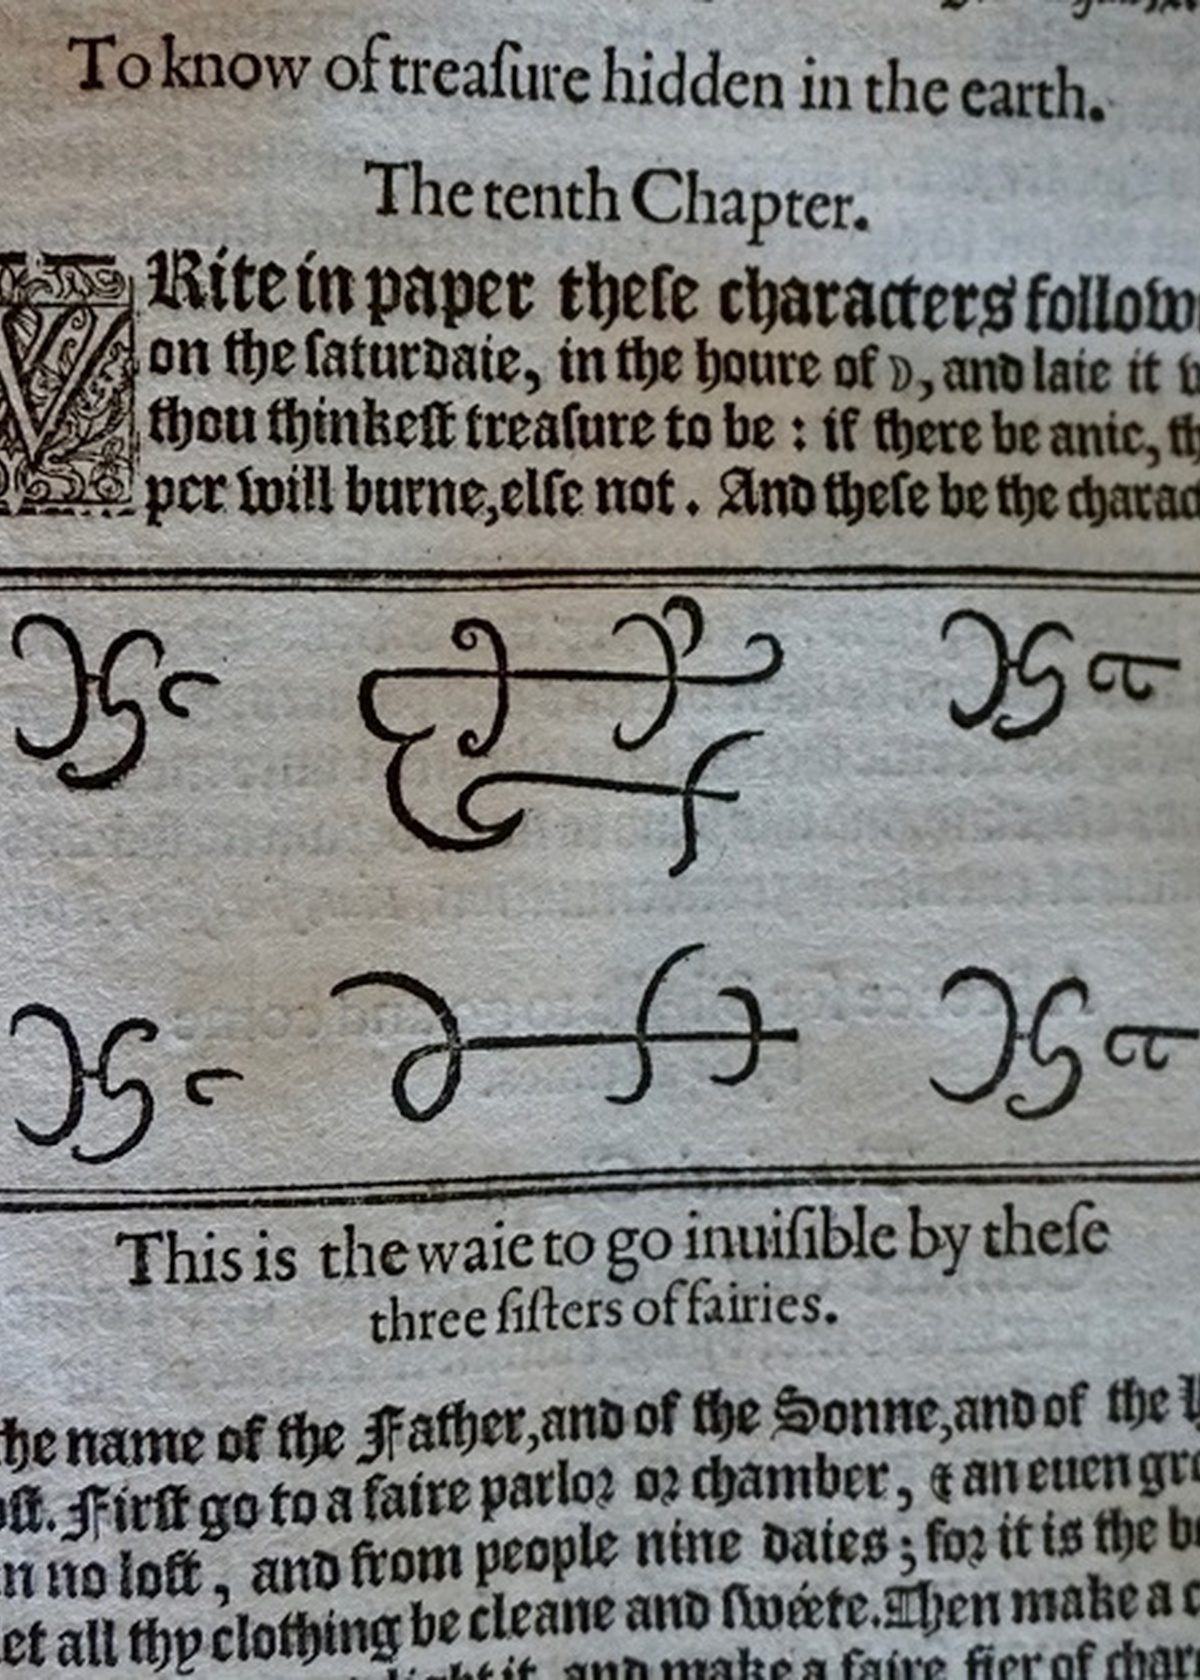 To know of treaſure hidden in the earth.
The tenth Chapter.
WRite in paper theſe characters follow
on the ſaturdaie, in the houre of ☽, and laie it
thou thinkeſt treaſure to be : if there be anie, th
per will burne, elſe not. And theſe be the charac
This is the waie to go inuiſible by theſe
three ſiſters of fairies.
he name of the Father, and of the Sonne, and of the
oſt. Firſt go to a faire parlor or chamber, & an euen gro
n no loft, and from people nine daies; for it is the b
et all thy clothing be cleane and ſwéete. Then make a c
light it, and make a faire fier of char